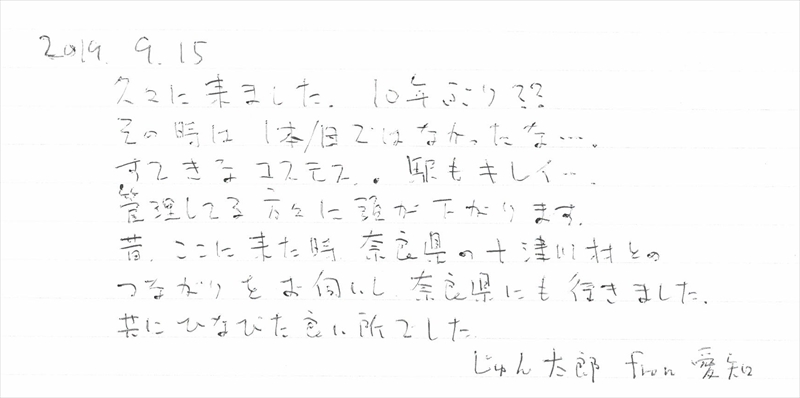 2019. 9. 15
久々に来ました. 10年ぶり??
その時は 1本/日ではなかったな….
すてきなコスモス.. 駅もキレイ….
管理してる方々に頭が下がります.
昔、ここに来た時 奈良県の十津川村との
つながりをお伺いし 奈良県にも行きました.
共にひなびた良い所でした.
じゅん太郎 from 愛知